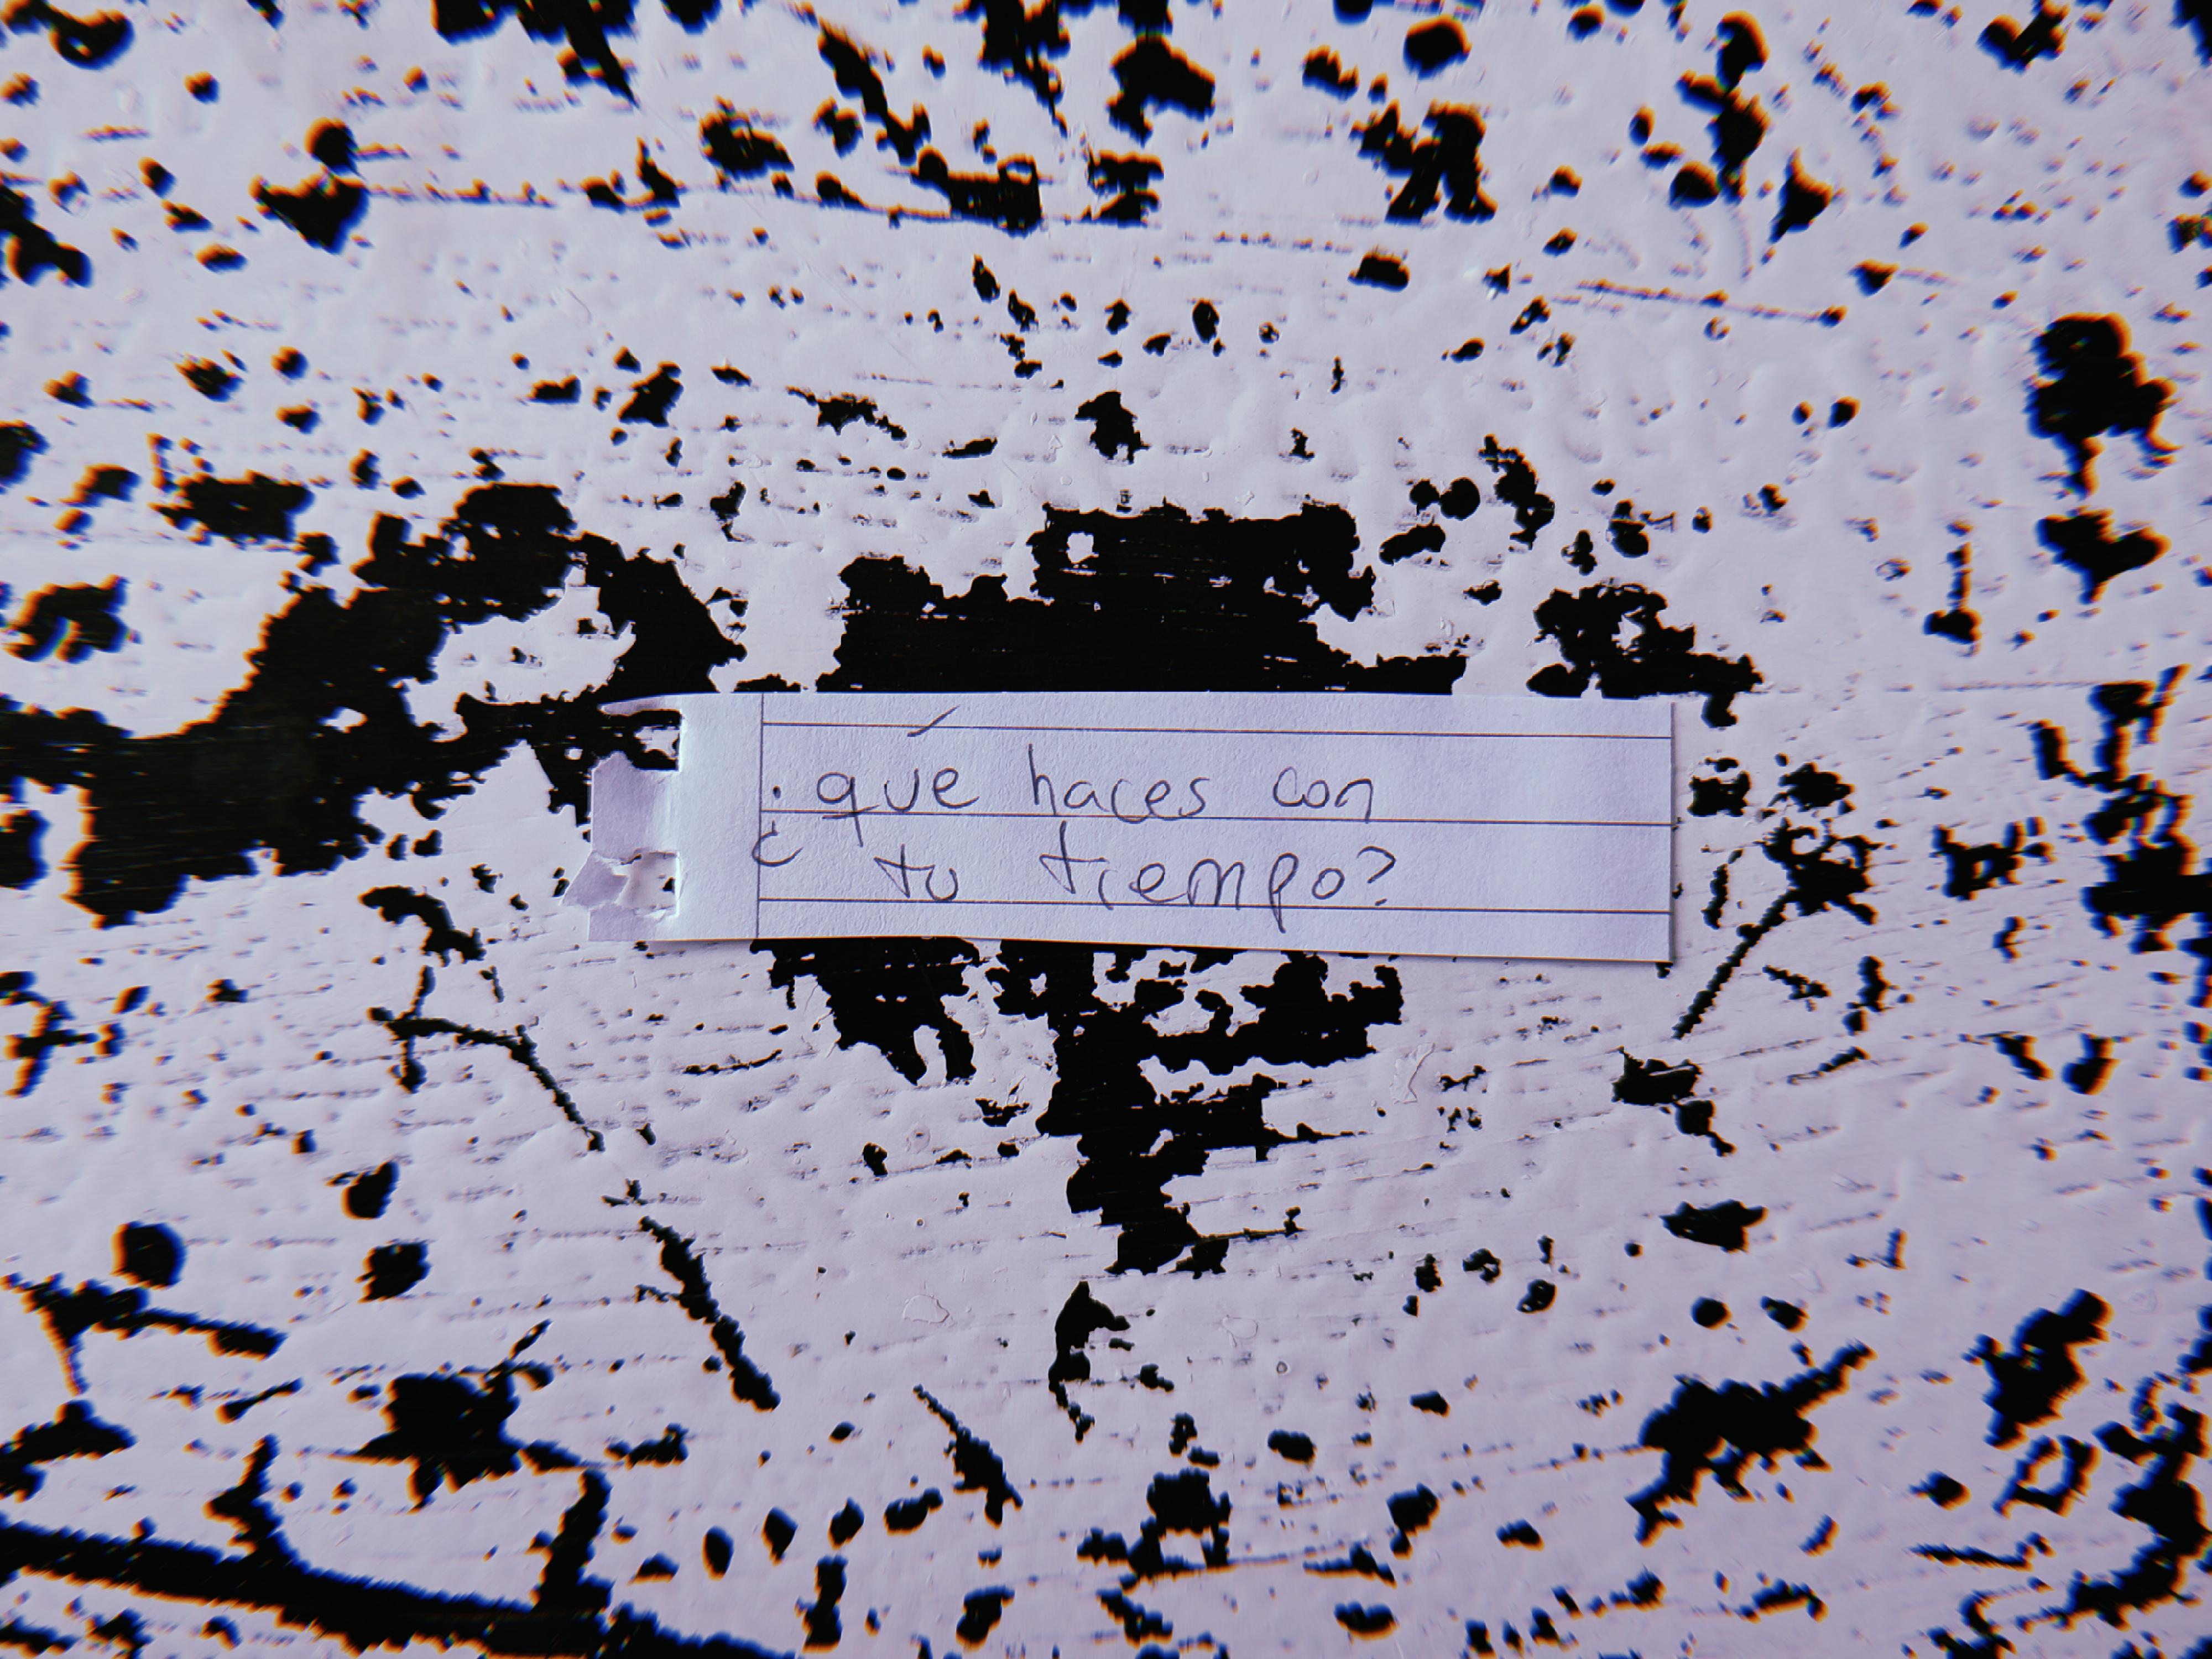 ¿qué haces con
tu tiempo?